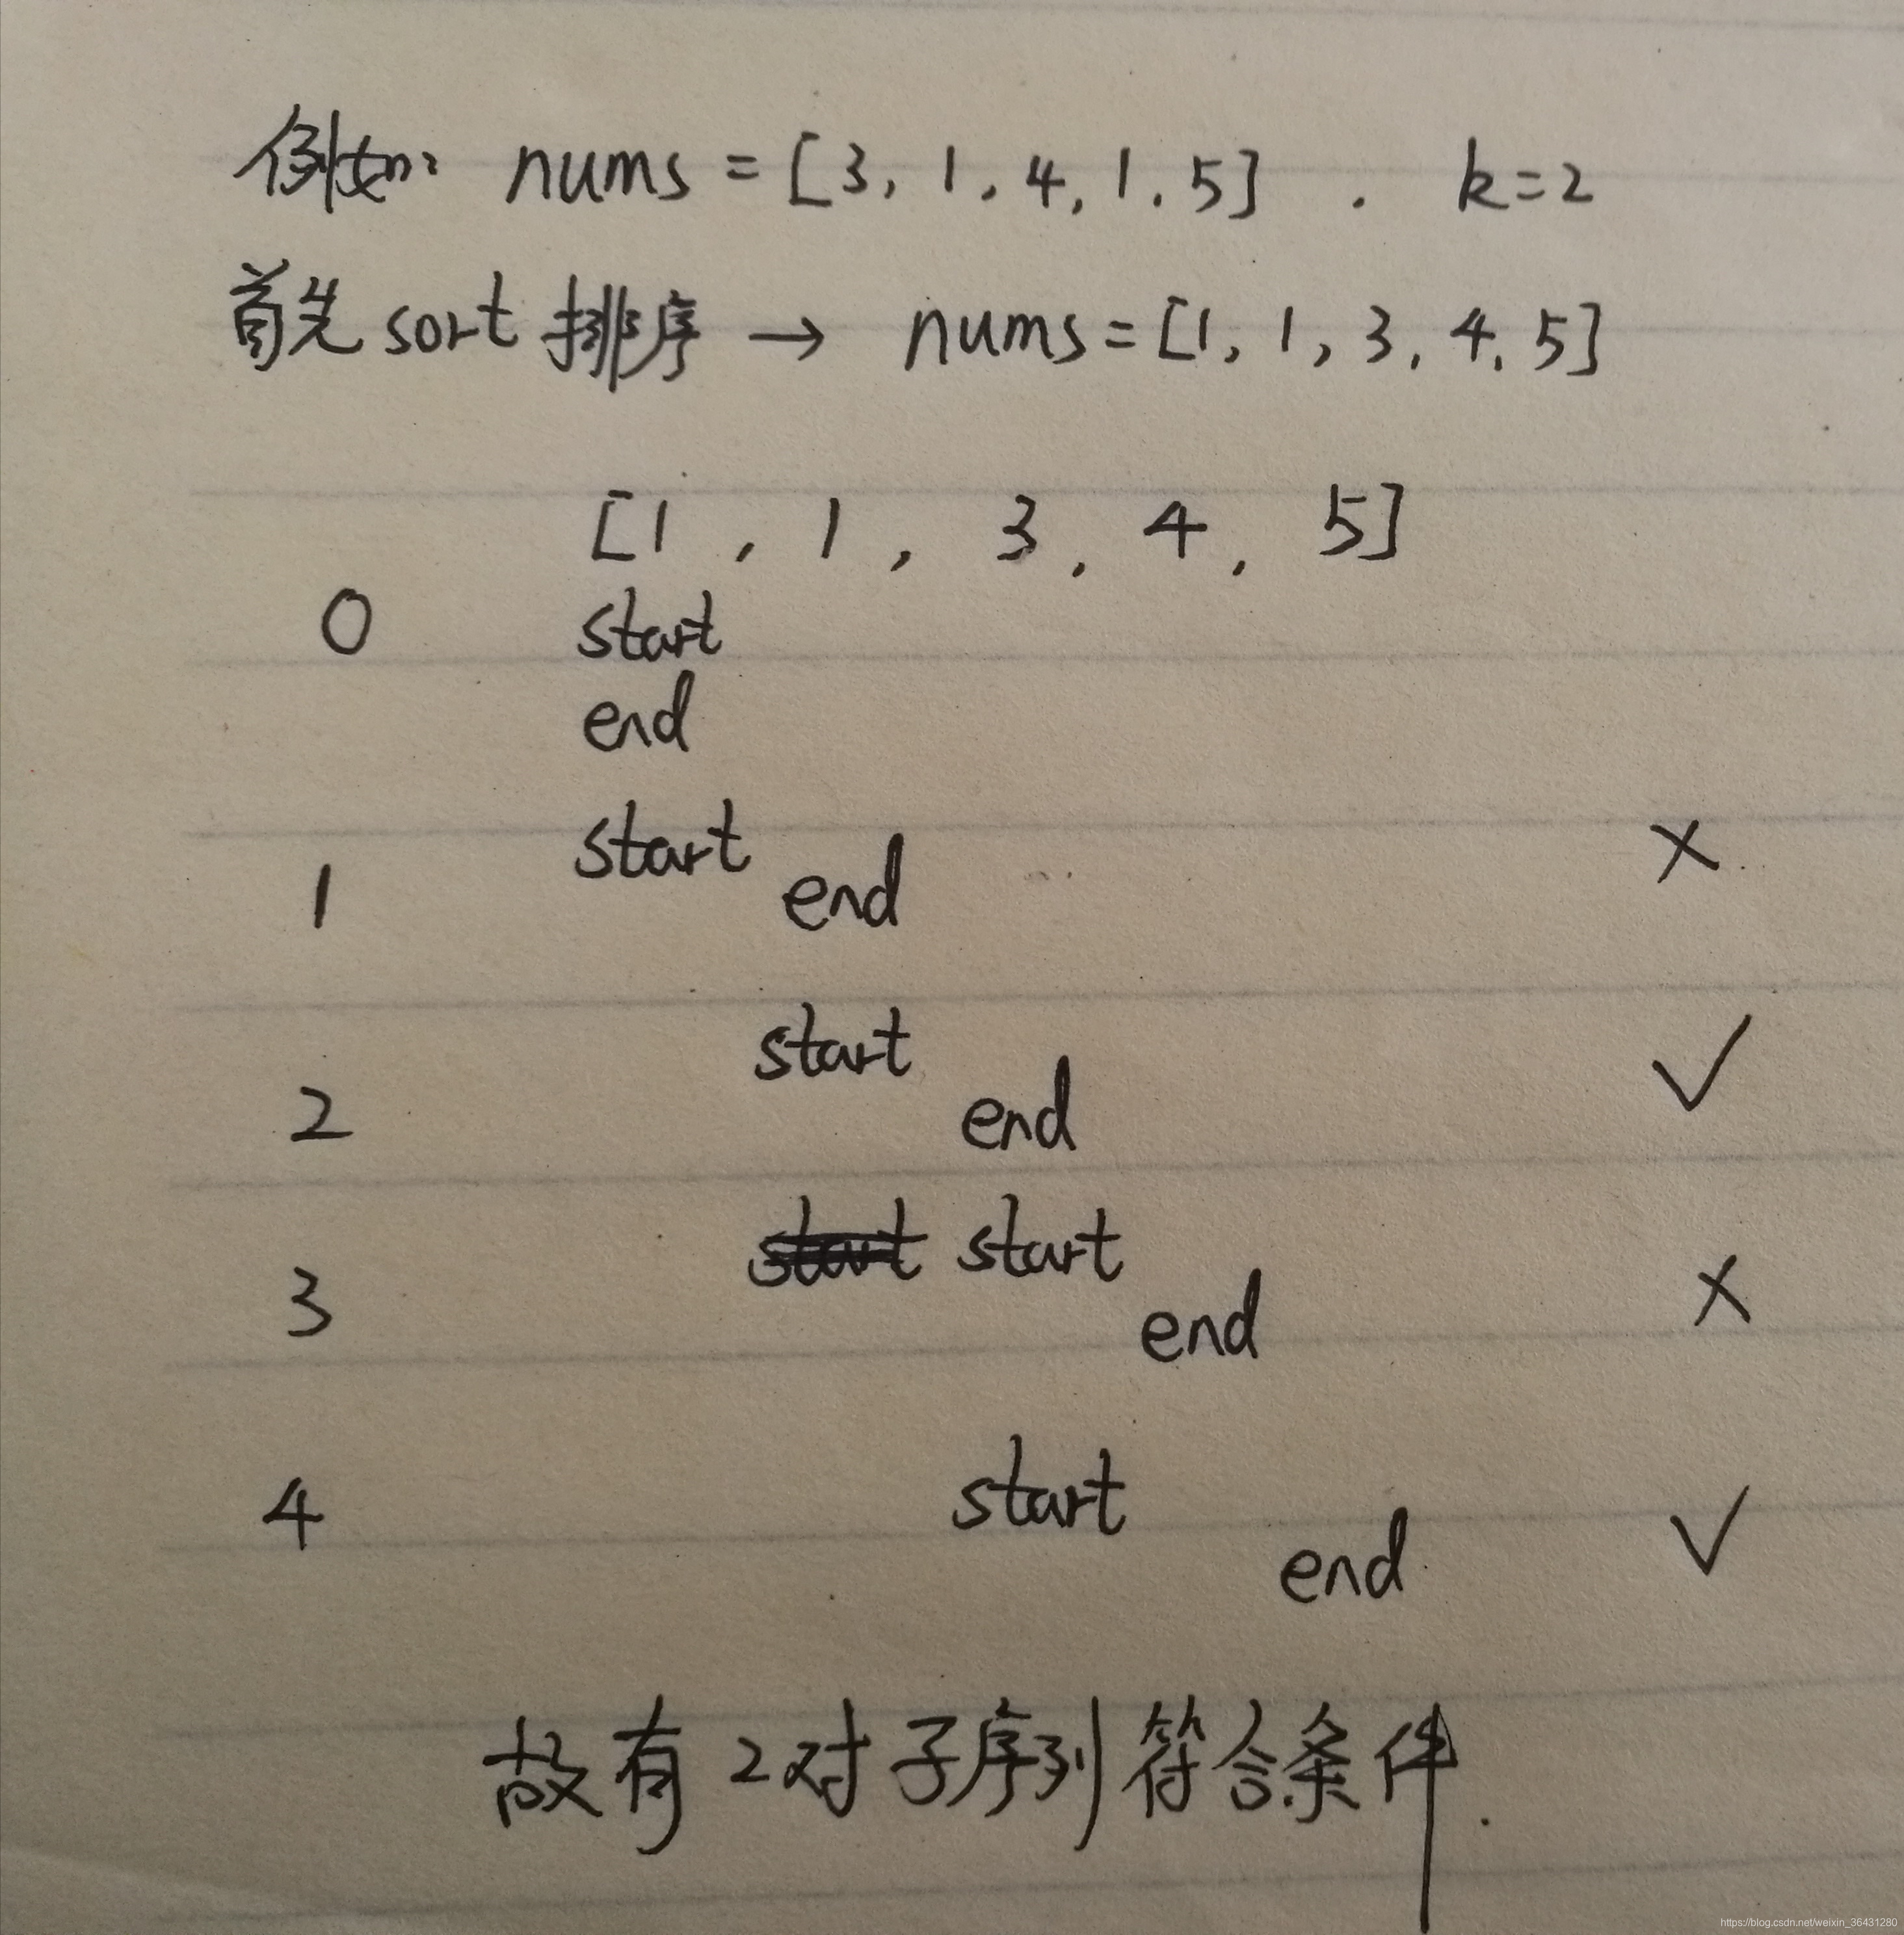 例如: nums = [3, 1, 4, 1, 5] . k=2
首先 sort 排序 → nums = [1, 1, 3, 4, 5]
[1 , 1 , 3 , 4 , 5]
0 start
end
1 start end ×
2 start end ✓
3 start start end ×
4 start end ✓
故有 2对子序列符合条件.
https://blog.csdn.net/weixin_36431280